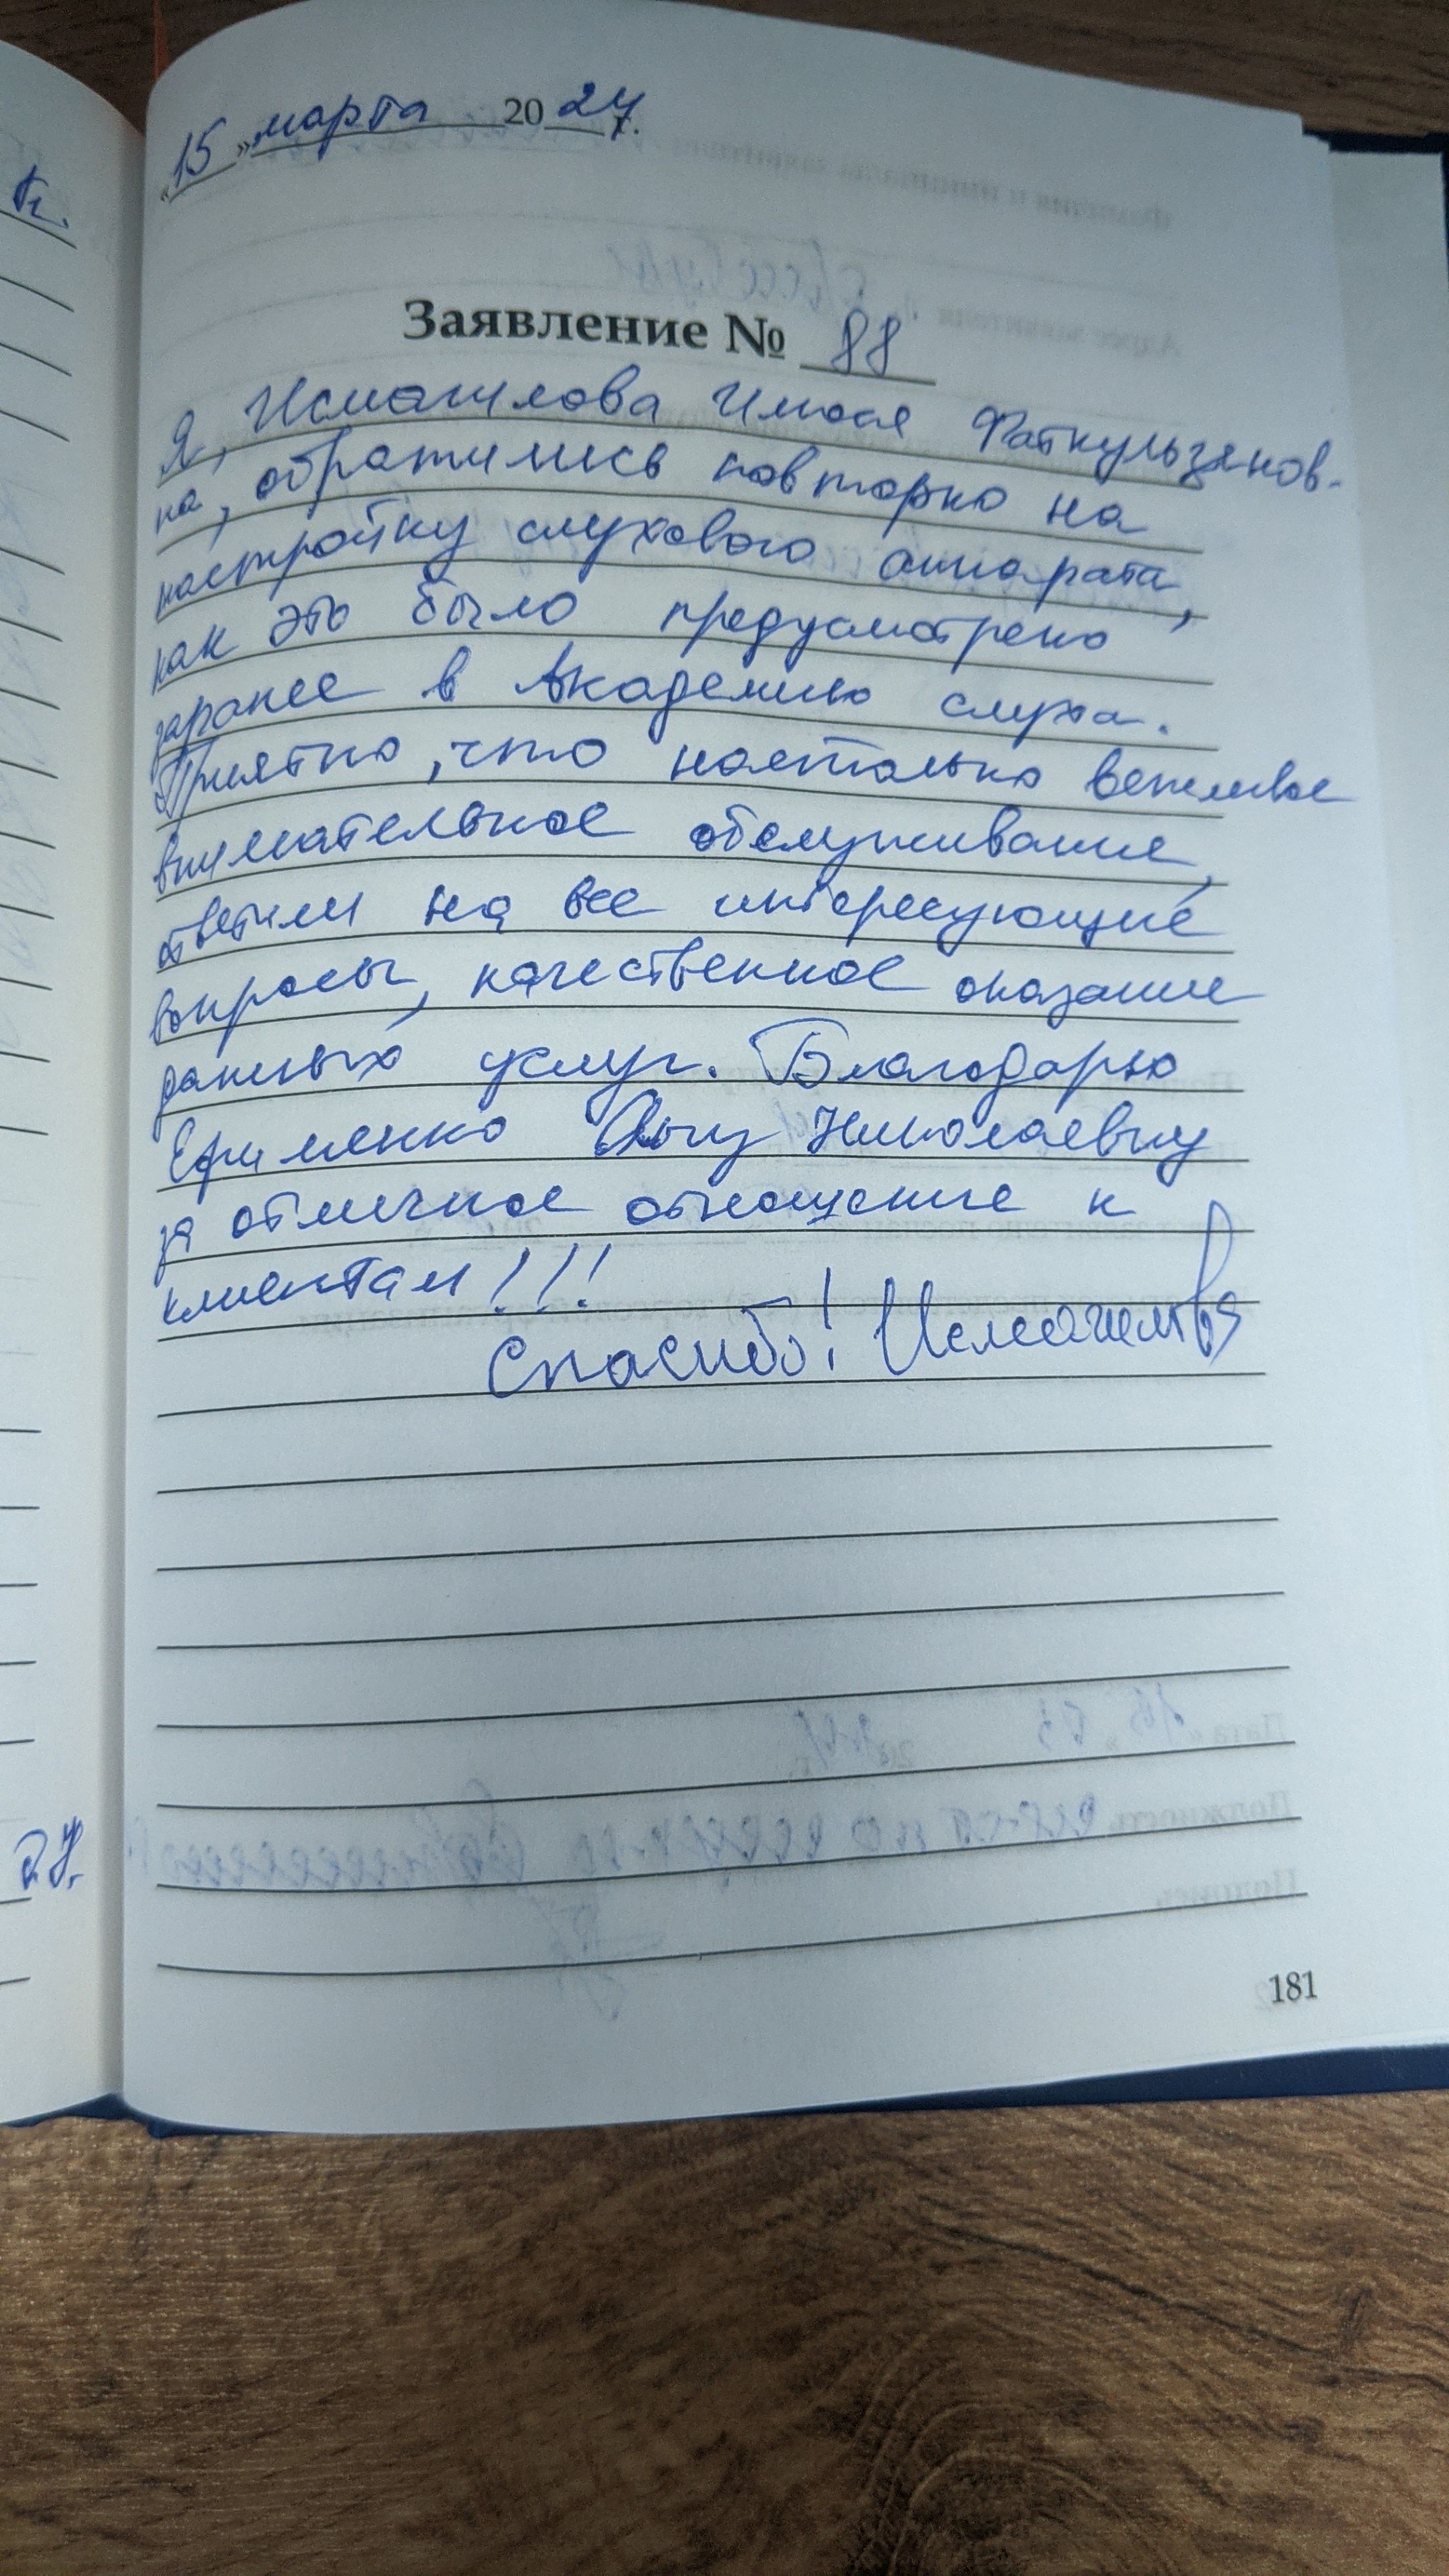 «15» марта 2024г.
Заявление № 88
Я, Исмагилова Илюся Фаткульзянов-
на, обратились повторно на
настройку слухового аппарата,
как это было предусмотрено
заранее в Академию слуха.
Приятно, что настолько вежливое
внимательное обслуживание,
ответили на все интересующие
вопросы, качественное оказание
данных услуг. Благодарю
Ефименко Николаевну
за отличное отношение к
клиентам!!!
Спасибо! Исмагилова
181